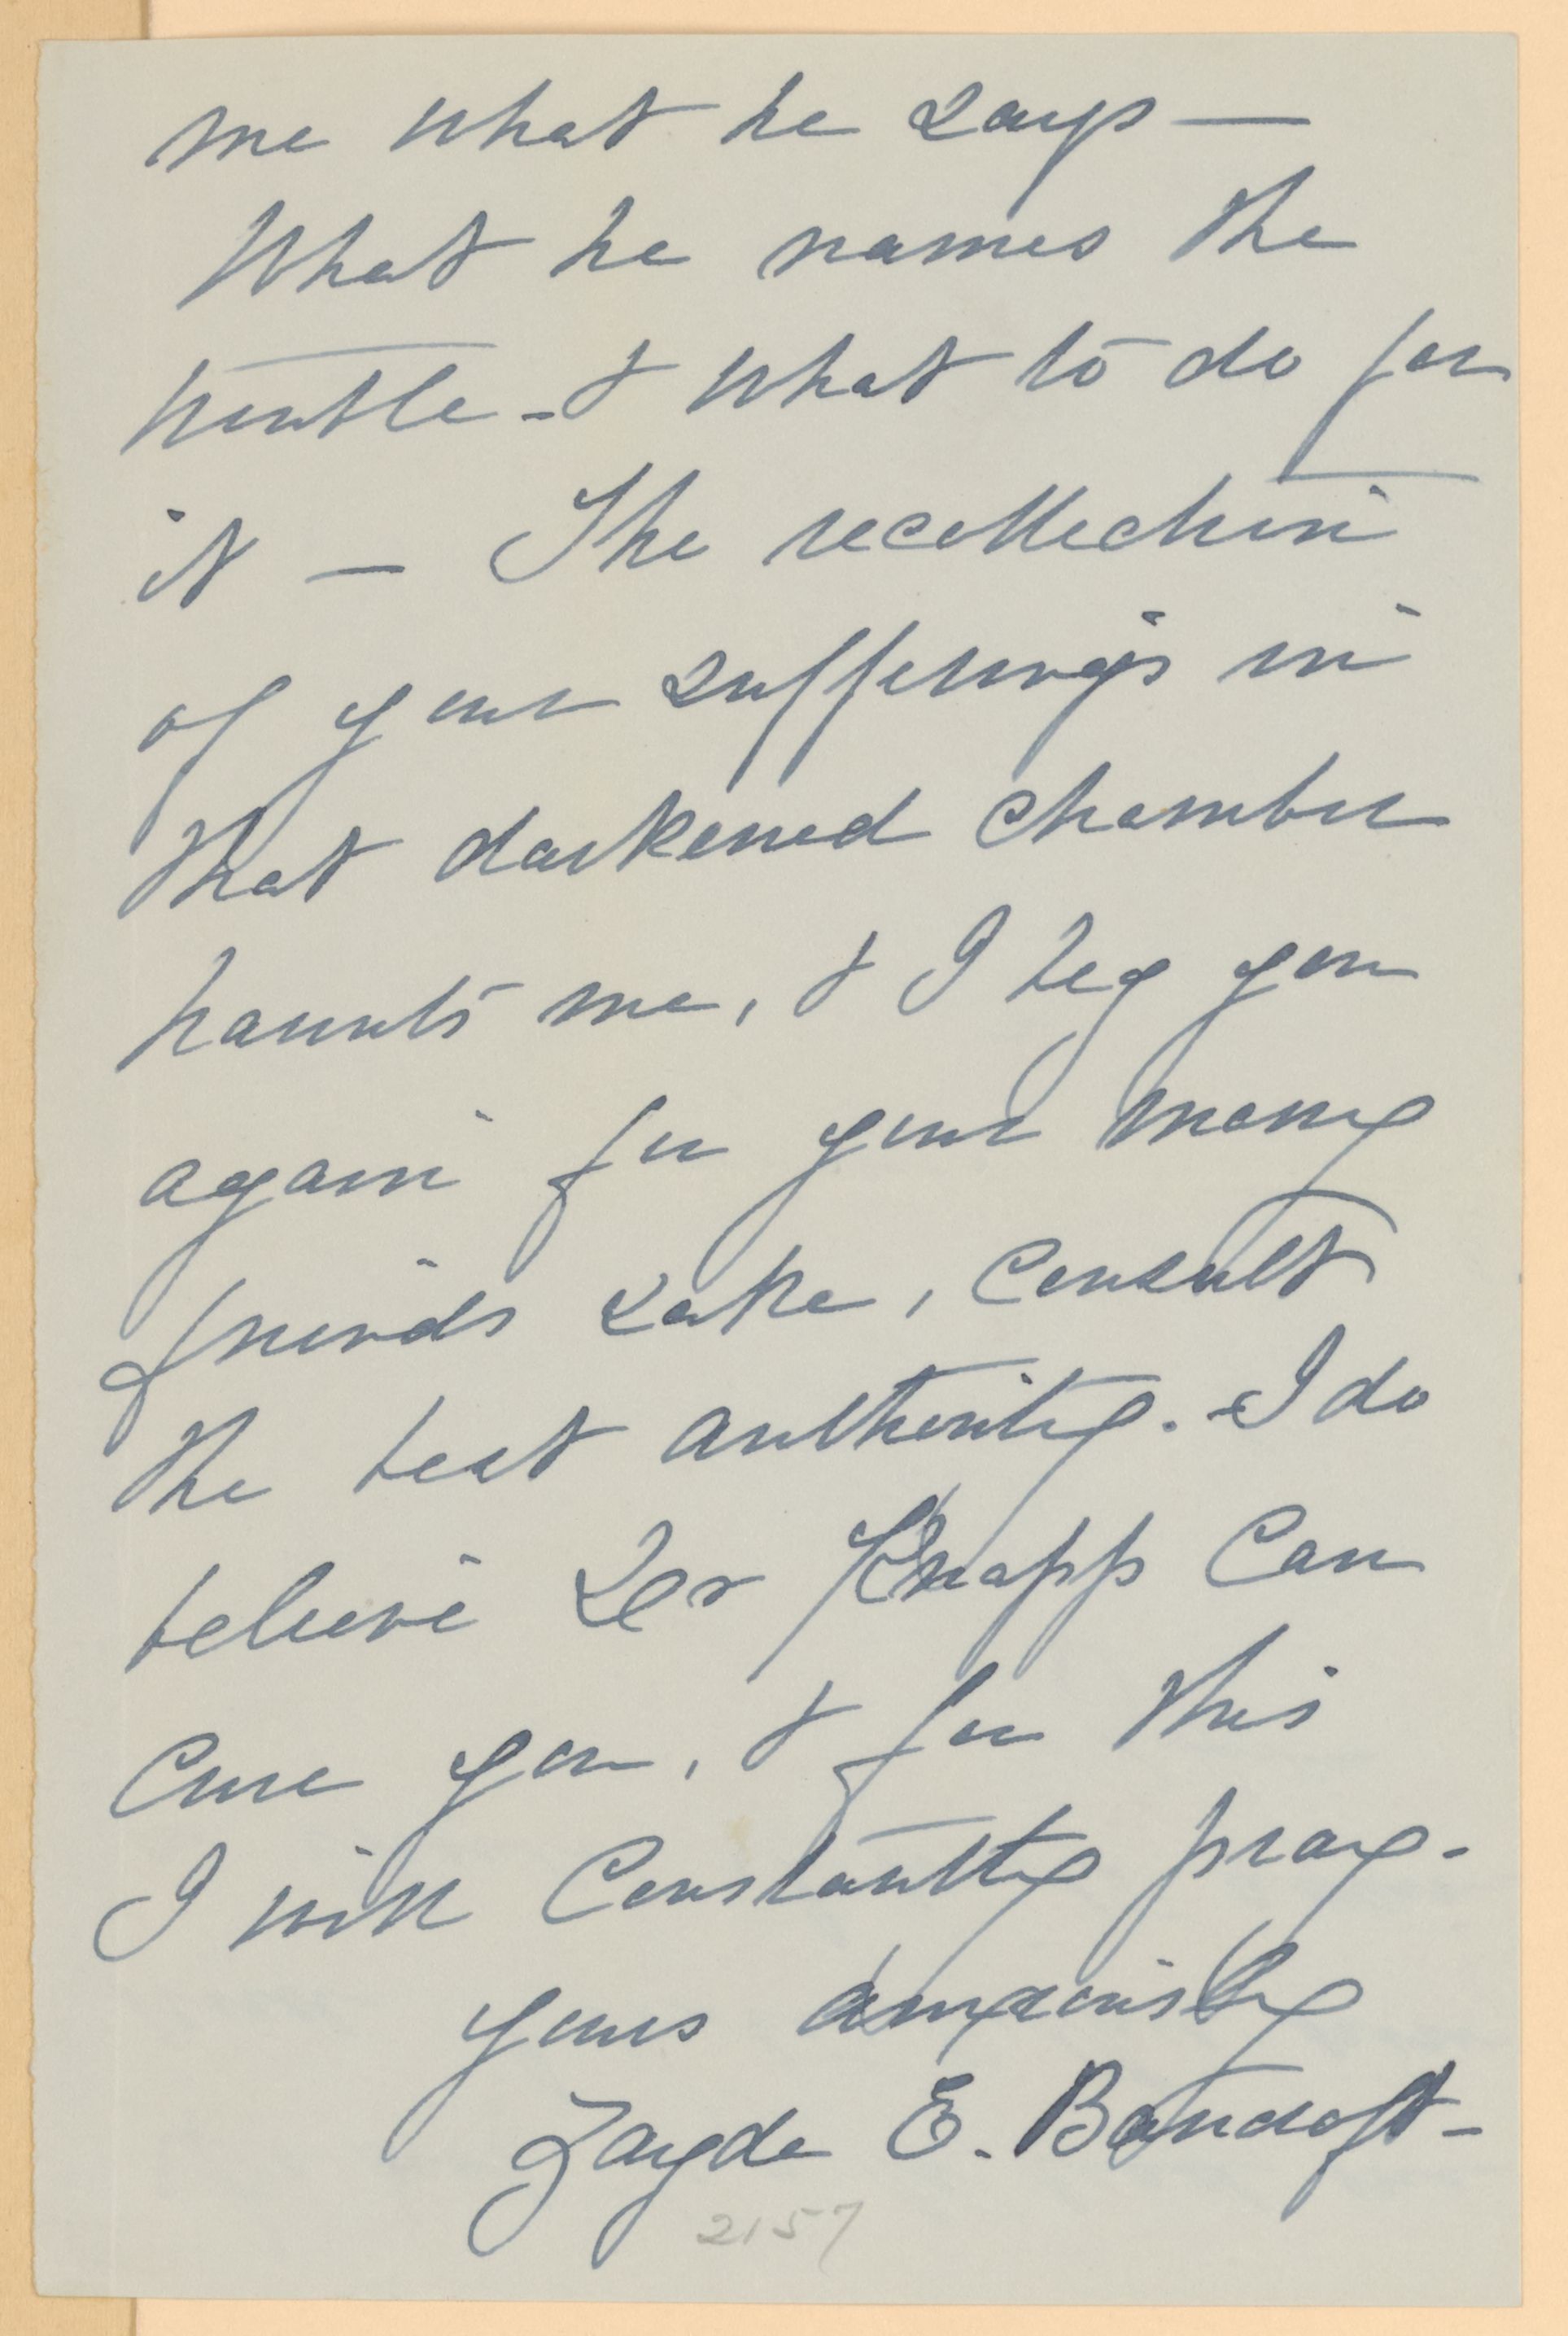 me what he says —
What he names the
trouble - & what to do for
it — The recollection
of your sufferings in
that darkened chamber
haunts me, & I beg you
again for your many
friends sake, consult
the best authority. - I do
believe Dr Knapp can
cure you, & for this
I will constantly pray -
yours anxiously
Zayde E. Bancroft -
2157